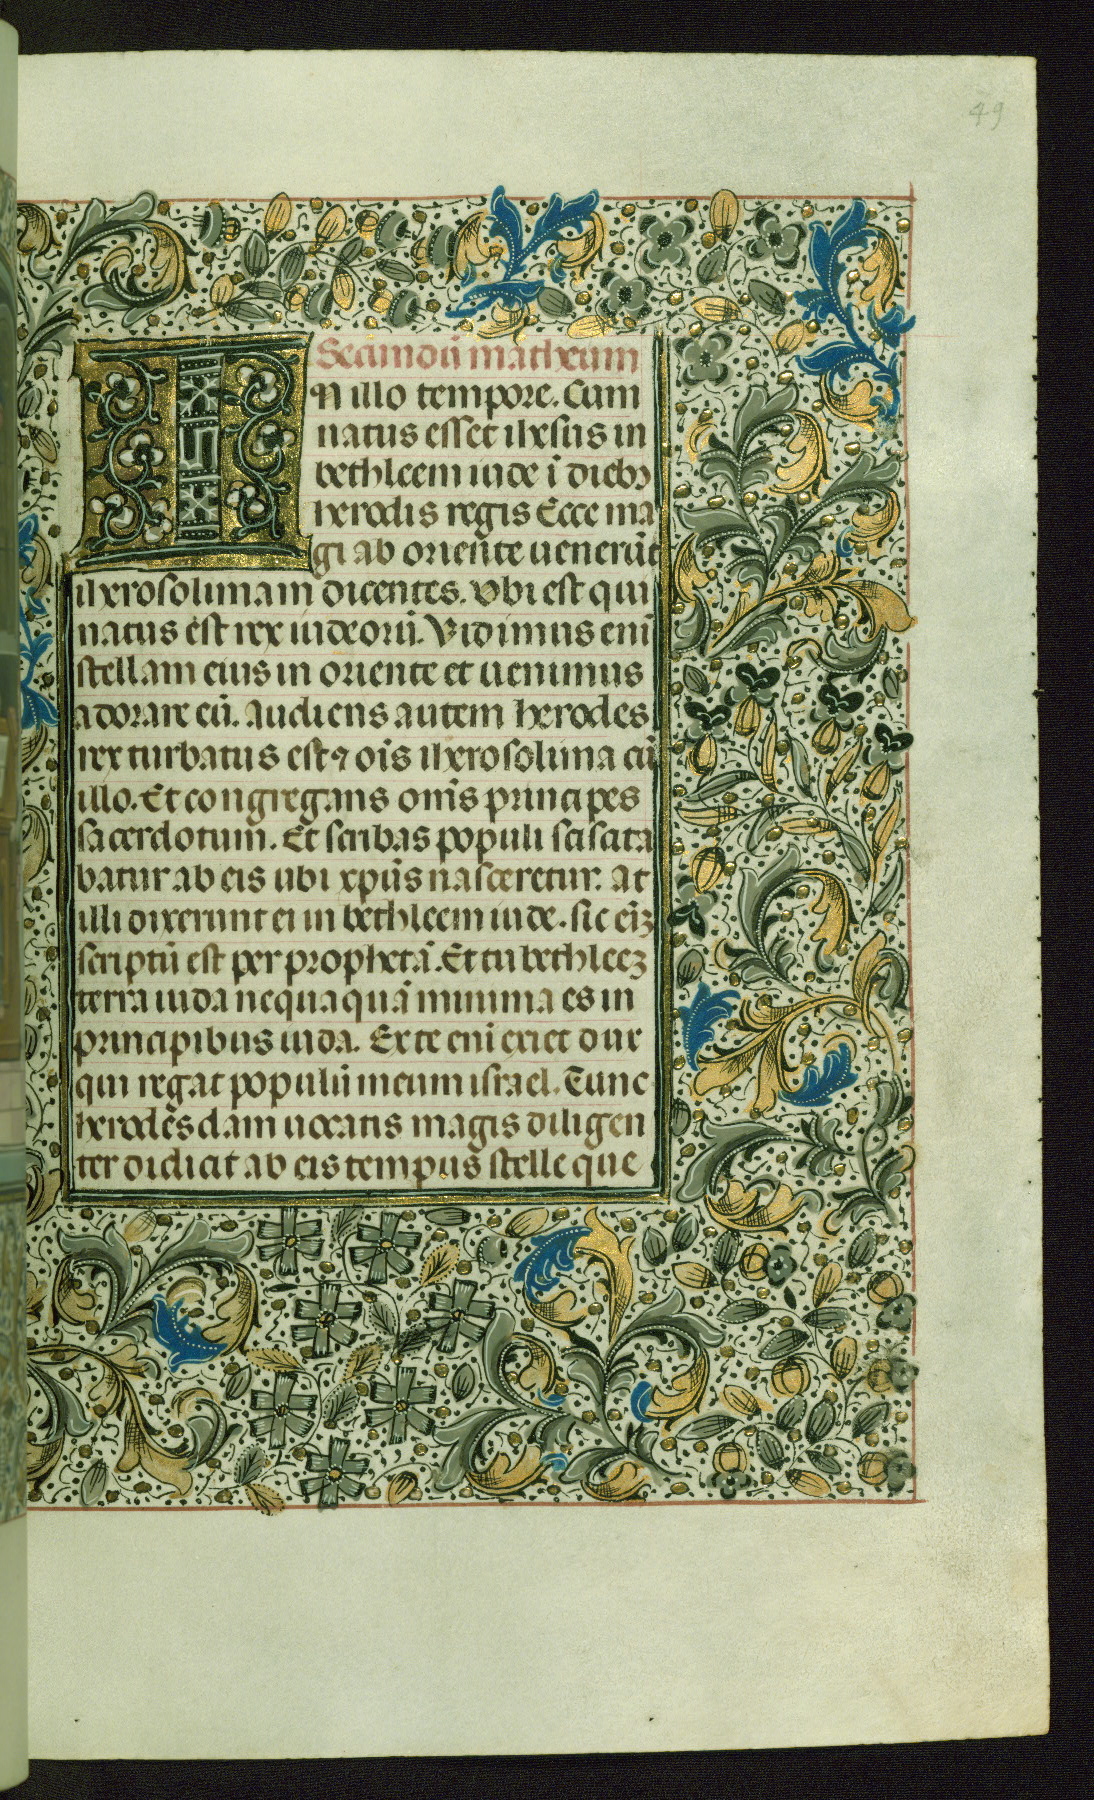 49
Secundū matheum
In illo tempore. Cum
natus esset ihesus in
bethleem iude ī diebꝫ
herodis regis Ecce ma
gi ab oriente uenerūt
iherosolimam dicentes. Vbi est qui
natus est rex iudeorū. Vidimus enī
stellam eius in oriente et uenimus
adorare eū. Audiens autem herodes
rex turbatus est ⁊ oīs iherosolima cū
illo. Et congregans om̄s principes
sacerdotum. Et scribas populi sciscita
batur ab eis ubi xpūs nasceretur. At
illi dixerunt ei in bethleem iude. sic eīꝫ
scriptū est per prophetā. Et tu bethleeꝫ
terra iuda nequaquā minima es in
principibus iuda. Ex te enī exiet dux
qui regat populū meum israel. Tunc
herodes clam uocatis magis diligen
ter didicit ab eis tempus stelle que